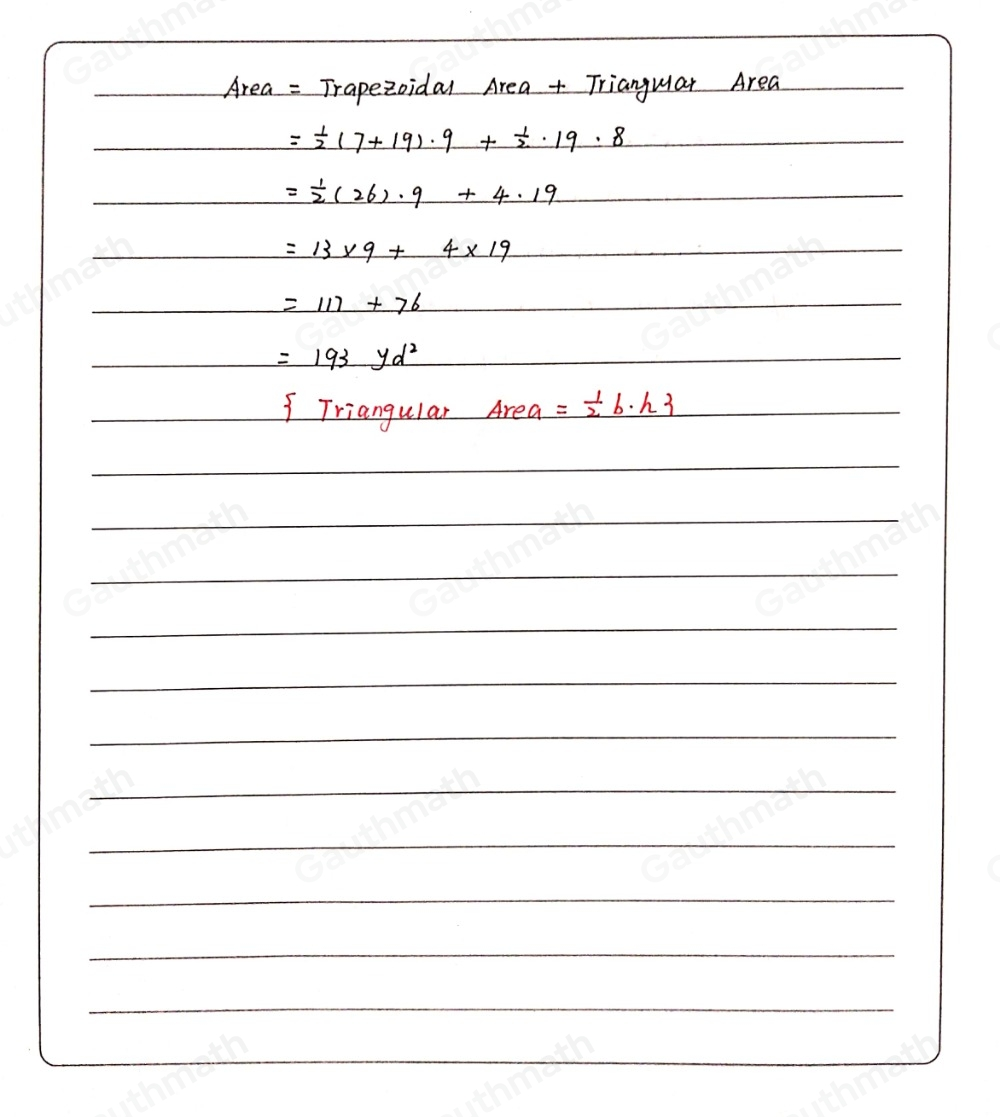 Area = Trapezoidal Area + Triangular Area
= 1/2 (7+19) · 9 + 1/2 · 19 · 8
= 1/2 (26) · 9 + 4 · 19
= 13 × 9 + 4 × 19
= 117 + 76
= 193 yd²
{ Triangular Area = 1/2 b · h }
Gauthmath